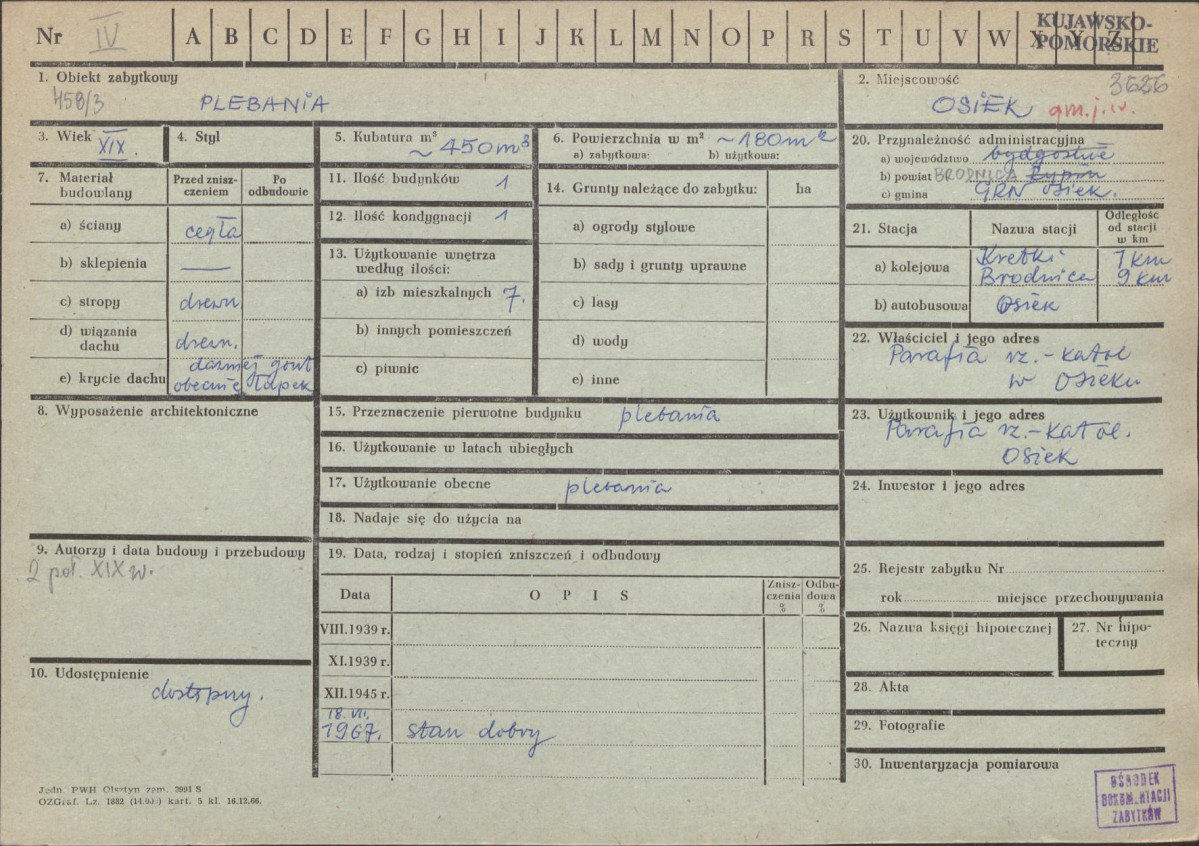 Nr IV A B C D E F G H I J K L M N O P R S T U V W X Y Z
KUJAWSKO-
POMORSKIE
1. Obiekt zabytkowy
458/3 PLEBANIA
2. Miejscowość 3626
OSIEK gm. j. w.
3. Wiek XIX.
4. Styl
5. Kubatura m³ ~ 450 m³
6. Powierzchnia w m² ~ 180 m²
a) zabytkowa: b) użytkowa:
7. Materiał budowlany
Przed znisz-
czeniem
Po
odbudowie
a) ściany cegła
b) sklepienia —
c) stropy drewn.
d) wiązania
dachu drewn.
dawniej gont
e) krycie dachu obecnie łupek
8. Wyposażenie architektoniczne
9. Autorzy i data budowy i przebudowy
2 poł. XIX w.
10. Udostępnienie
dostępny.
11. Ilość budynków 1
12. Ilość kondygnacji 1
13. Użytkowanie wnętrza
według ilości:
a) izb mieszkalnych 7.
b) innych pomieszczeń
c) piwnic
14. Grunty należące do zabytku: ha
a) ogrody stylowe
b) sady i grunty uprawne
c) lasy
d) wody
e) inne
15. Przeznaczenie pierwotne budynku plebania
16. Użytkowanie w latach ubiegłych
17. Użytkowanie obecne plebania
18. Nadaje się do użycia na
19. Data, rodzaj i stopień zniszczeń i odbudowy
Data O P I S
Znisz-
czenia
%
Odbu-
dowa
%
VIII.1939 r.
XI.1939 r.
XII.1945 r.
18. VII.
1967. stan dobry
20. Przynależność administracyjna
a) województwo bydgoskie
b) powiat BRODNICA Rypin
c) gmina GRN Osiek.
21. Stacja Nazwa stacji
Odległość
od stacji
w km
a) kolejowa Kretki 7 km
Brodnica 9 km
b) autobusowa Osiek
22. Właściciel i jego adres
Parafia rz.-katol
w Osieku
23. Użytkownik i jego adres
Parafia rz.-katol.
Osiek
24. Inwestor i jego adres
25. Rejestr zabytku Nr
rok miejsce przechowywania
26. Nazwa księgi hipotecznej
27. Nr hipo-
teczny
28. Akta
29. Fotografie
30. Inwentaryzacja pomiarowa
Jedn. PWH Olsztyn zam. 3001 S
OZGraf. Lz. 1882 (14.000) kart. 5 kl. 16.12.66.
OŚRODEK
DOKUMENTACJI
ZABYTKÓW